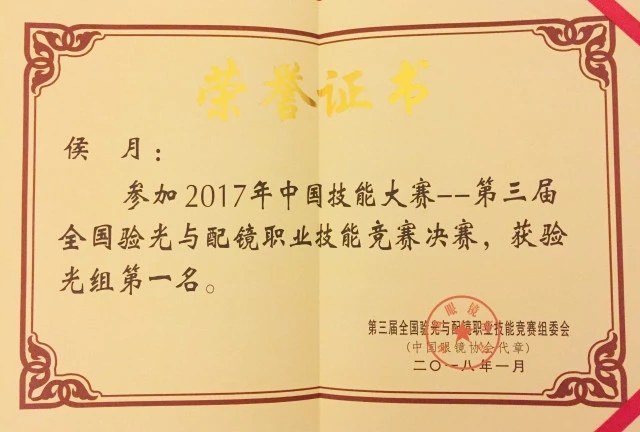 荣誉证书
侯 月：
参加2017年中国技能大赛--第三届
全国验光与配镜职业技能竞赛决赛，获验
光组第一名。
第三届全国验光与配镜职业技能竞赛组委会
（中国眼镜协会代章）
二〇一八年一月